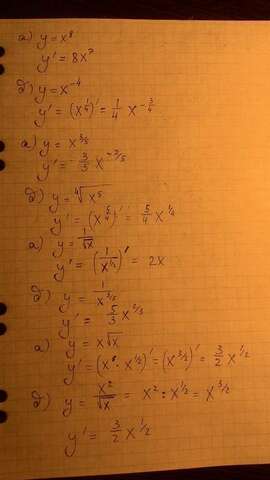 а) y = x⁸
y' = 8x⁷
б) y = x⁻⁴
y' = (x^{1/4})' = 1/4 x^{-3/4}
а) y = x^{3/5}
y' = 3/5 x^{-2/5}
б) y = ⁴√x⁵
y' = (x^{5/4})' = 5/4 x^{1/4}
а) y = 1/√x
y' = (1/x^{1/2})' = 2x
б) y = 1/x^{3/5}
y' = 5/3 x^{2/3}
а) y = x√x
y' = (x · x^{1/2})' = (x^{3/2})' = 3/2 x^{1/2}
б) y = x²/√x = x² : x^{1/2} = x^{3/2}
y' = 3/2 x^{1/2}